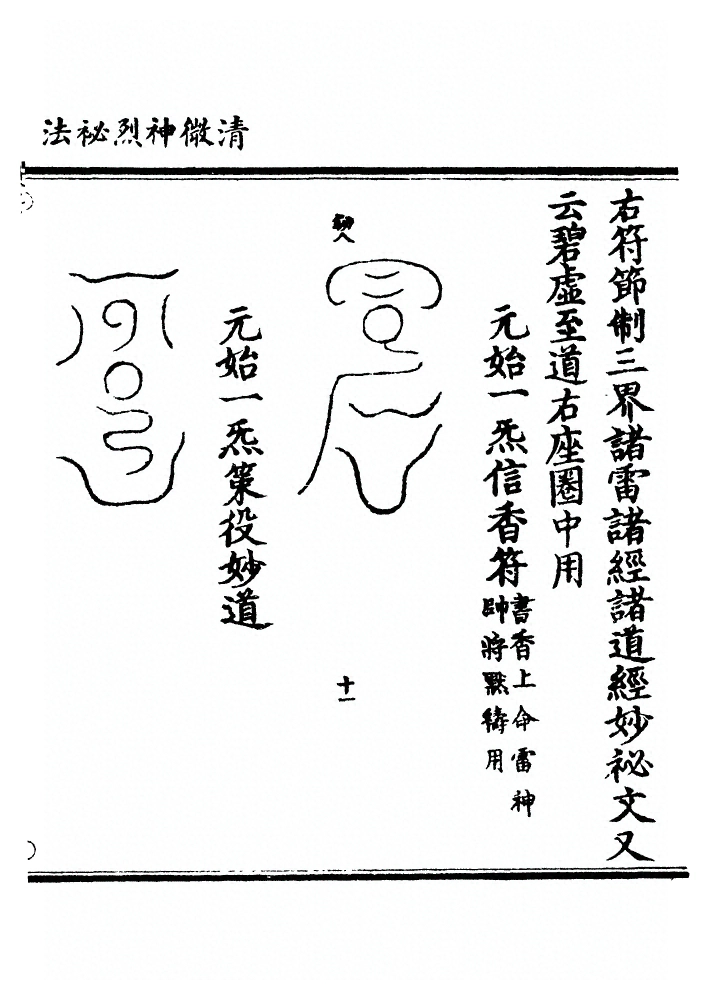 清微神烈祕法
右符節制三界諸雷諸經諸道經妙祕文又
云碧虛至道右座圈中用
元始一炁信香符
書香上命雷神
帥將默禱用
十一
元始一炁策役妙道